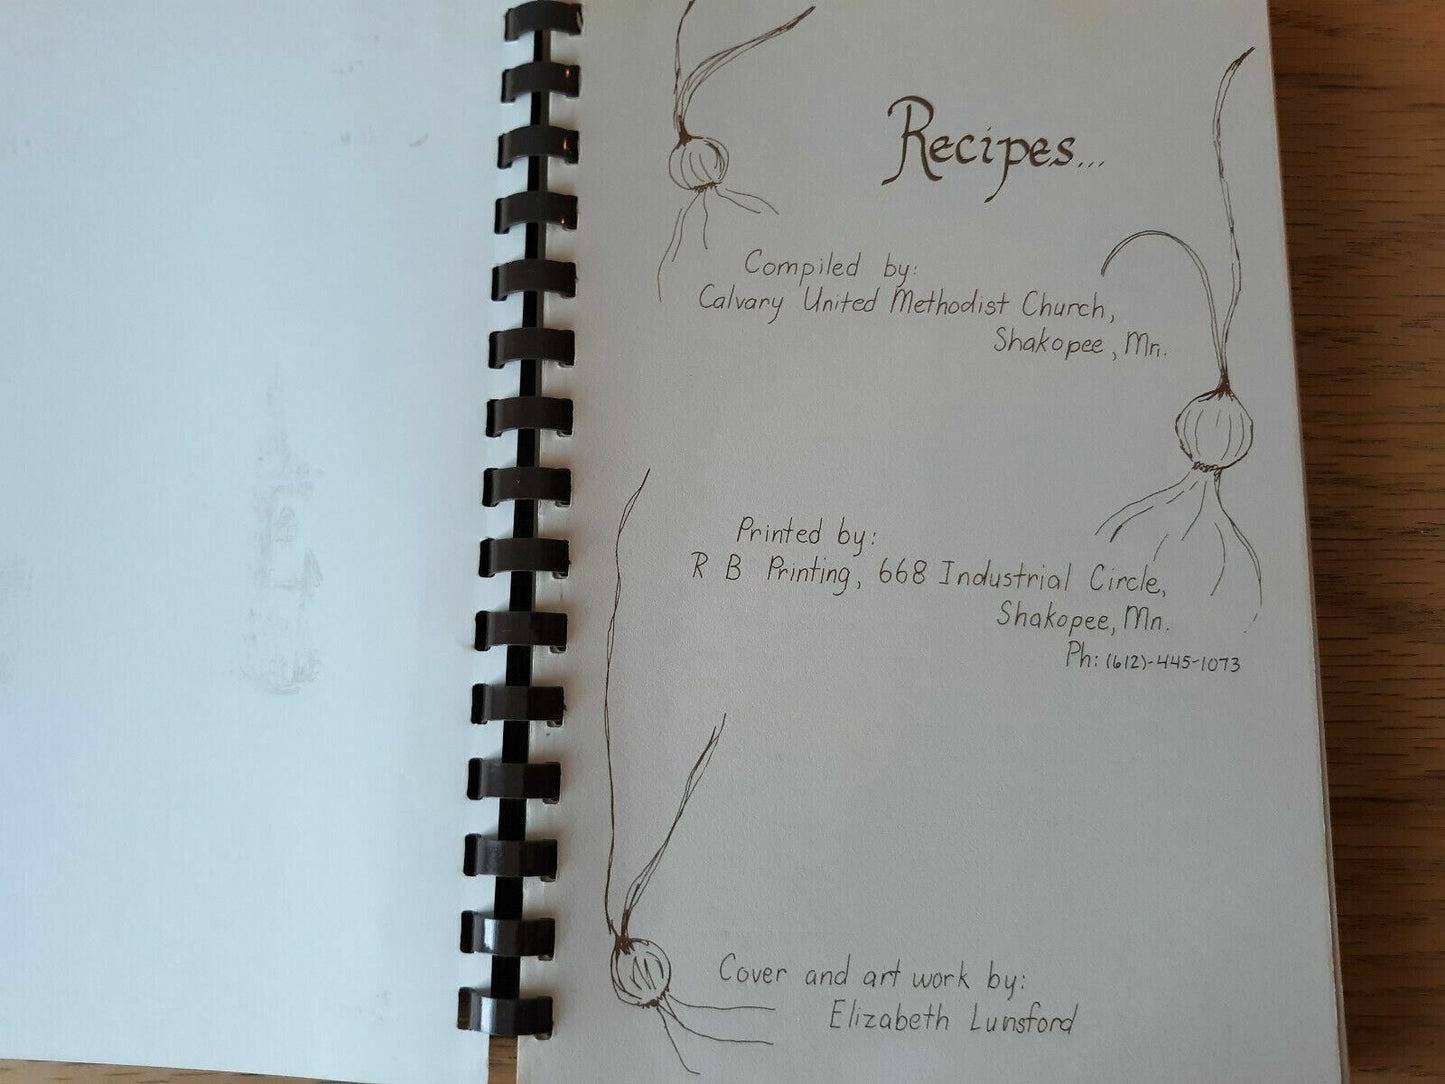 Recipes...
Compiled by:
Calvary United Methodist Church,
Shakopee, Mn.
Printed by:
R B Printing, 668 Industrial Circle,
Shakopee, Mn.
Ph: (612)-445-1073
Cover and art work by:
Elizabeth Lunsford